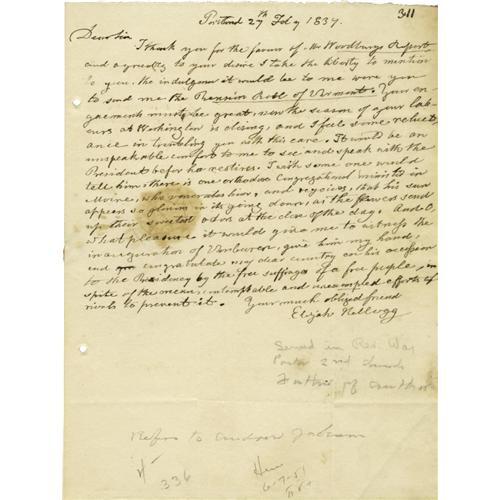 311
Portland 27th Feby 1837.
Dear Sir
I thank you for the favour of Mr Woodburys Report
and agreeably to your desire I take the liberty to mention
to you the indulgence it would be to me were you
to send me the Pension Roll of Vermont. Your en-
gagements must be great now the season of your lab-
ours at Washington is closing, and I feel some reluct-
ance in troubling you with this care. It would be an
unspeakable comfort to me to see and speak with the
President before he retires. I wish some one would
tell him, there is one orthodox Congregational minister in
Maine, who venerates him, and rejoices, that his sun
appears so glorious in its going down, as the flowers send
up their sweetest odors at the close of the day. And O,
what pleasure it would give me to witness the
inauguration of Vanburen, give him my hand,
and congratulate my dear country on his accession
to the Presidency by the free suffrage of a free people, in
spite of the mean, contemptible and unexampled efforts of
rivals to prevent it. Your much obliged friend
Elijah Kellogg
Served in Rev. War
Pastor 2nd Church
Father of author
Refers to Andrew Jackson
336
6-7-51